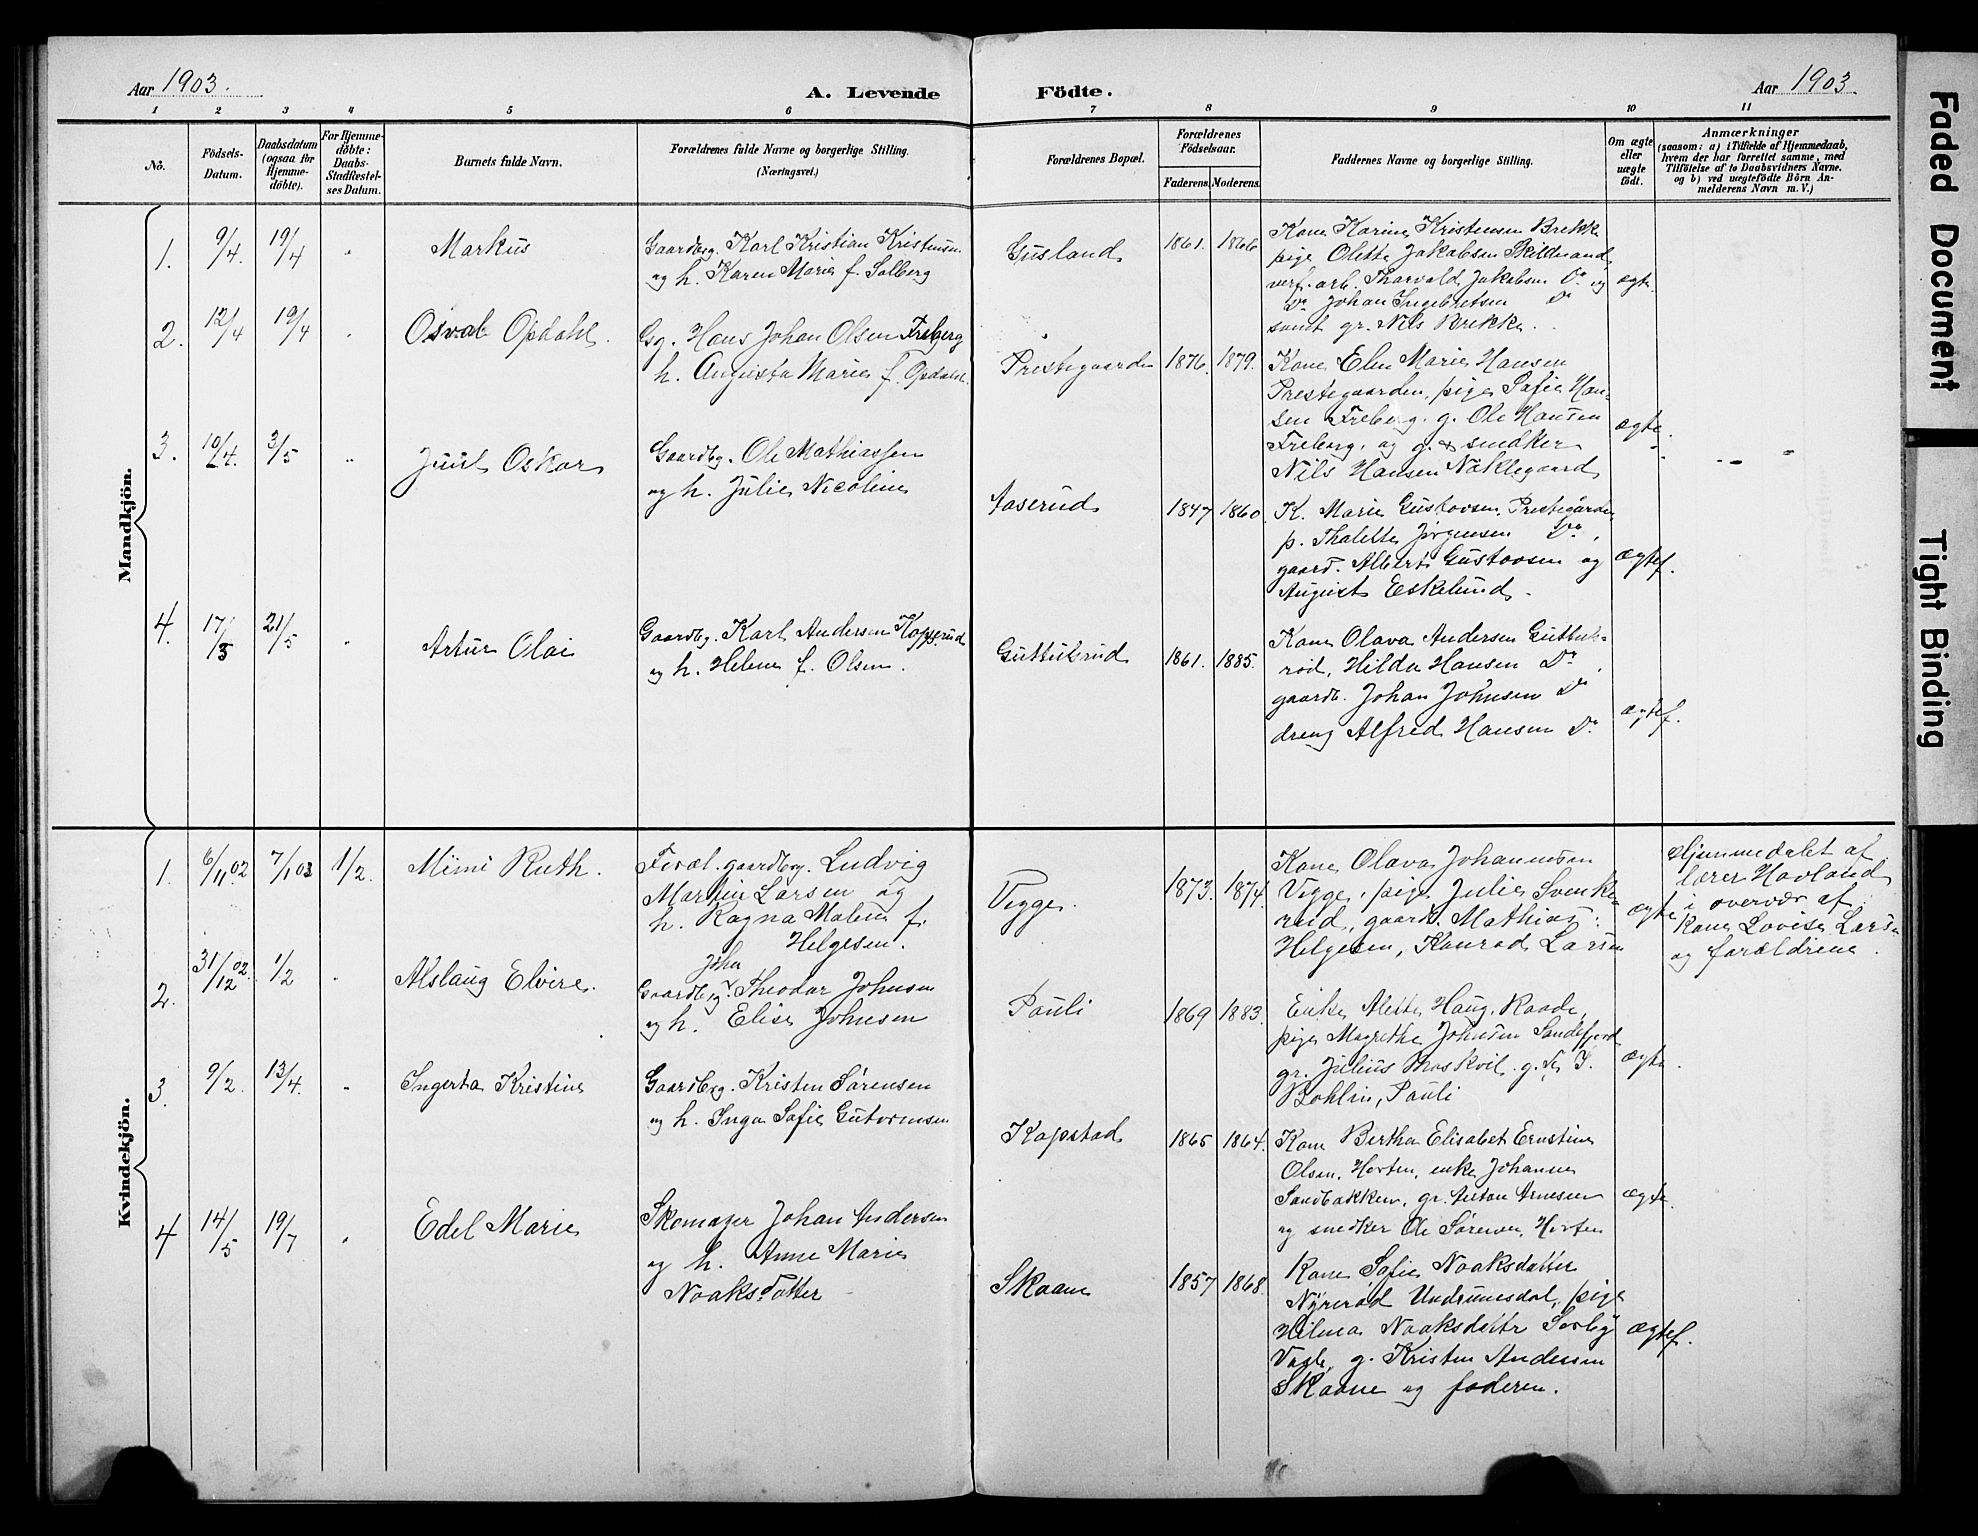 Aar 1903.
A. Levende
Födte.
Aar 1903.
1 2 3 4 5 6 7 8 9 10 11
No.
Födsels-
Datum.
Daabsdatum
(ogsaa for
Hjemme-
döbte).
For Hjemme-
döbte:
Daabs-
Stadfæstel-
ses Datum.
Barnets fulde Navn.
Forældrenes fulde Navne og borgerlige Stilling.
(Næringsvei.)
Forældrenes Bopæl.
Forældrenes
Födselsaar.
Faderens. Moderens.
Faddernes Navne og borgerlige Stilling.
Om ægte
eller
uægte
födt.
Anmærkninger
(saasom: a) i Tilfælde af Hjemmedaab,
hvem der har forrettet samme, med
Tilföielse af to Daabsvidners Navne.
og b) ved uægtefödte Börn An-
melderens Navn m. V.)
Mandkjön.
1. 9/4. 19/4 "
Markus
Gaardbrg. Karl Kristian Kristensen
og h. Karen Marie f. Solberg
Gusland
1861. 1866.
Kone Karine Kristensen Brekke
pige Olette Jakobsen Skildsand,
verf.arb. Tharvald Jakobsen Do og
Do Johan Ingebretsen Do
samt gr. Nils Brekke.
ægte.
2. 12/4 19/4 "
Osval Opdahl.
Gg. Hans Johan Olsen Freberg
h. Augusta Marie f. Opdahl.
Prestegaarden
1876. 1879.
Kone Elen Marie Hansen
Prestegaarden, pige Sofie Han-
sen Freberg. g. Ole Hansen
Freberg, og g. & snedker
Nils Hansen Naklegaard
ægte.
3. 19/4. 3/5 "
Juul Oskar
Gaardbg. Ole Mathiassen
og h. Julie Nicoline
Aaserud
1847 1860.
K. Marie Gustavsen, Prestegården
p. Thalette Jørgensen Do,
gaard. Albert Gustavsen og
August Eskelund.
ægtef.
4. 17/3 21/5 "
Artur Olai
Gaardbg. Karl Andersen Kopperud
og h. Helene f. Olsen.
Guttulsrud
1861. 1885.
Kone Olava Andersen Guttuls-
rød, Hilda Hansen Do.
gaardb. Johan Johnsen Do
dreng Alfred Hansen Do
ægtef.
Kvindekjön.
1. 6/11.02 7/1 03 1/2.
Mimi Ruth.
Foræl. gaardbrg. Ludvig
Martin Larsen og
h. Ragna Malene f.
Helgesen.
Vegge.
1873. 1874.
Kone Olava Johannesen
Vegge, pige Julie Svenke-
rud, gaardb. Mathias
Helgesen, Konrad Larsen
ægte
Hjemmedøbt af
lærer Havland
i overvær af
Kone Lovise Larsen
og forældrene.
2. 31/12 02. 1/2 "
Aslaug Elvire.
Joha
Gaardbrg Theodor Johnsen
og h. Elise Johnsen
Pauli
1869 1883.
Enke Alette Haug, Raade,
pige Magrethe Johnsen Sandefjord
gr. Julius Moskvil. g. F. I.
Bohlin, Pauli
ægte.
3. 9/2. 13/4. "
Ingerta Kristine
Gaardbrg. Kristen Sørensen
og h. Inga Sofie Gutormsen
Kopstad
1865 1864.
Kone Bertha Elisabet Ernstine
Olsen, Horten, enke Johanne
Sandbakken, gr. Anton Arnesen
og snedker Ole Sørensen, Horten
ægte.
4 14/5 19/7 "
Edel Marie
Skomager Johan Andersen
og h. Anne Marie
Noaksdatter
Skaane
1857 1868.
Kone Sofie Noaksdatter
Nyrerød Undrumsdal, pige
Hilma Noaksdattr Sørby
Vaale, g. Kristen Andersen
Skaane og faderen.
ægtef.
Faded Document
Tight Binding